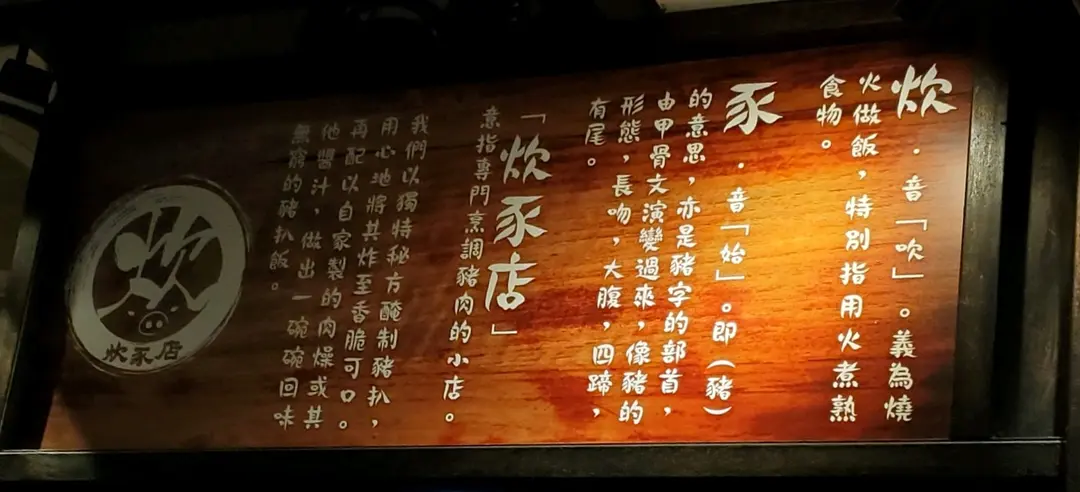 炊．音「吹」。義為燒
火做飯，特別指用火煮熟
食物。
豕．音「始」。即（豬）
的意思，亦是豬字的部首，
由甲骨文演變過來，像豬的
形態，長吻，大腹，四蹄，
有尾。
「炊豕店」
意指專門烹調豬肉的小店。
我們以獨特秘方醃制豬扒，
用心地將其炸至香脆可口。
再配以自家製的肉燥或其
他醬汁，做出一碗碗回味
無窮的豬扒飯。
炊
炊豕店